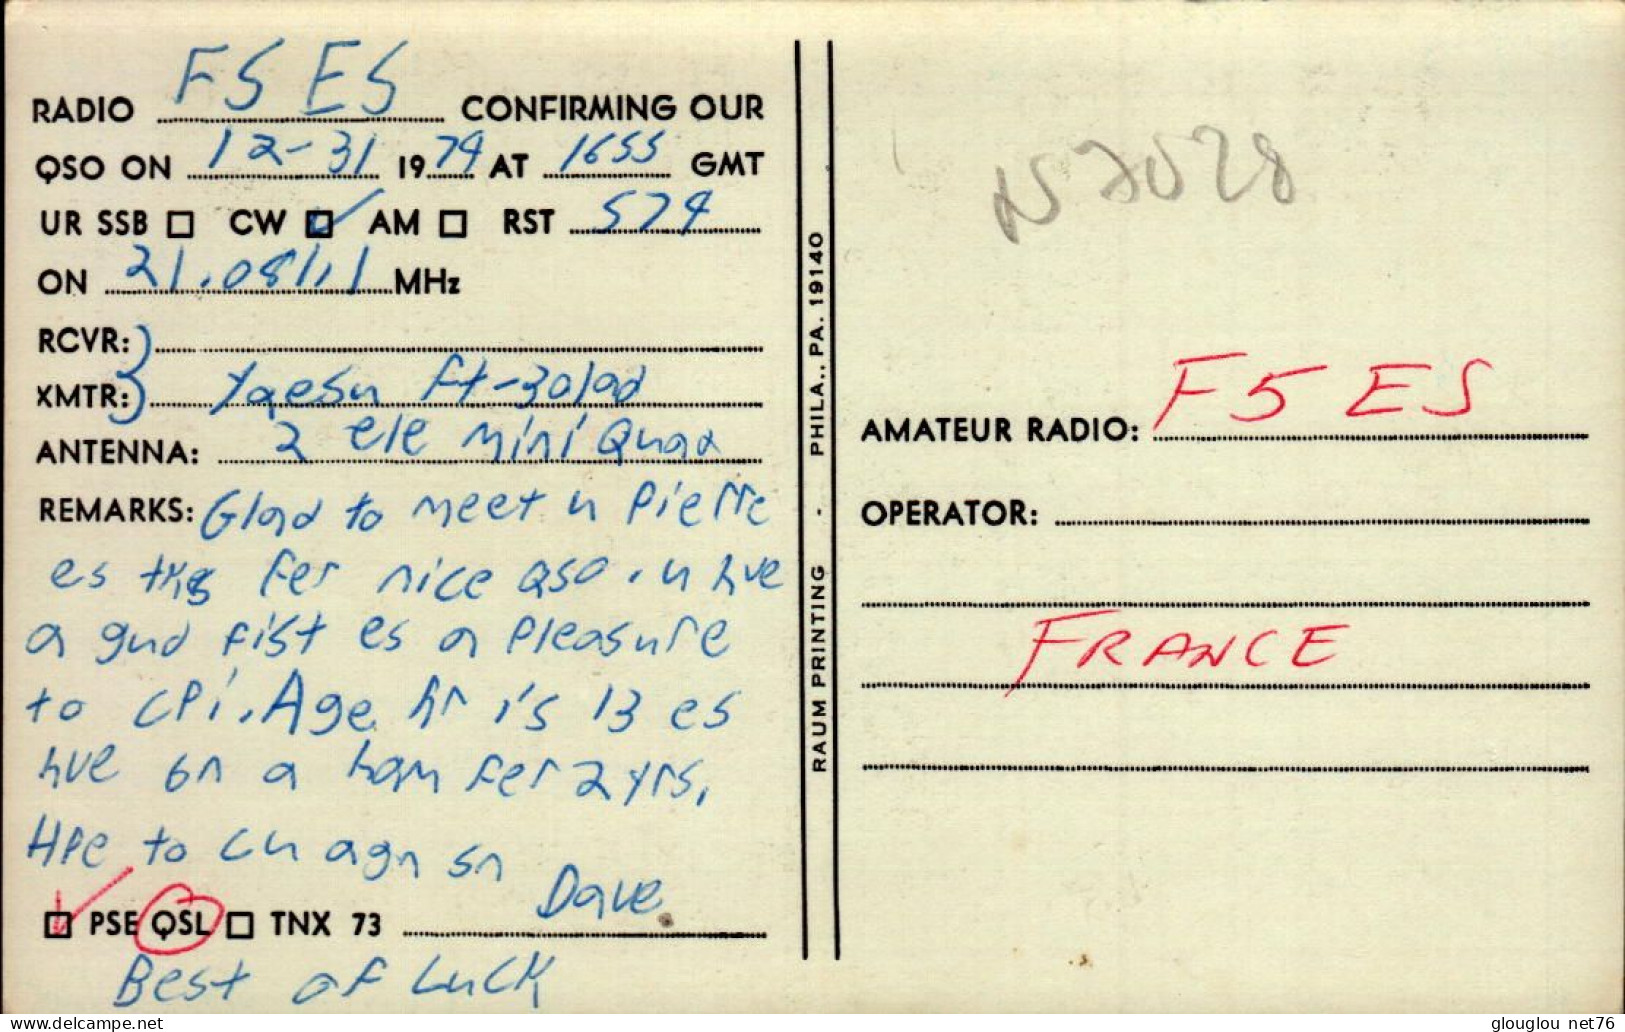 RADIO F5ES CONFIRMING OUR
QSO ON 12-31 1979 AT 1655 GMT
UR SSB ☐ CW ☑ AM ☐ RST 579
ON 21.081.1 MHz
RCVR:
XMTR: Yaesu ft-301ad
ANTENNA: 2 ele mini Quad
REMARKS: Glad to meet u Pierre
es tks fer nice QSO. u hve
a gud fist es a pleasure
to cpi. Age hr is 13 es
hve bn a ham fer 2 yrs,
Hpe to cu agn sn
Dave
☑ PSE QSL ☐ TNX 73
Best of Luck
RAUM PRINTING · PHILA., PA. 19140
AMATEUR RADIO: F5ES
OPERATOR:
FRANCE
glouglou net76